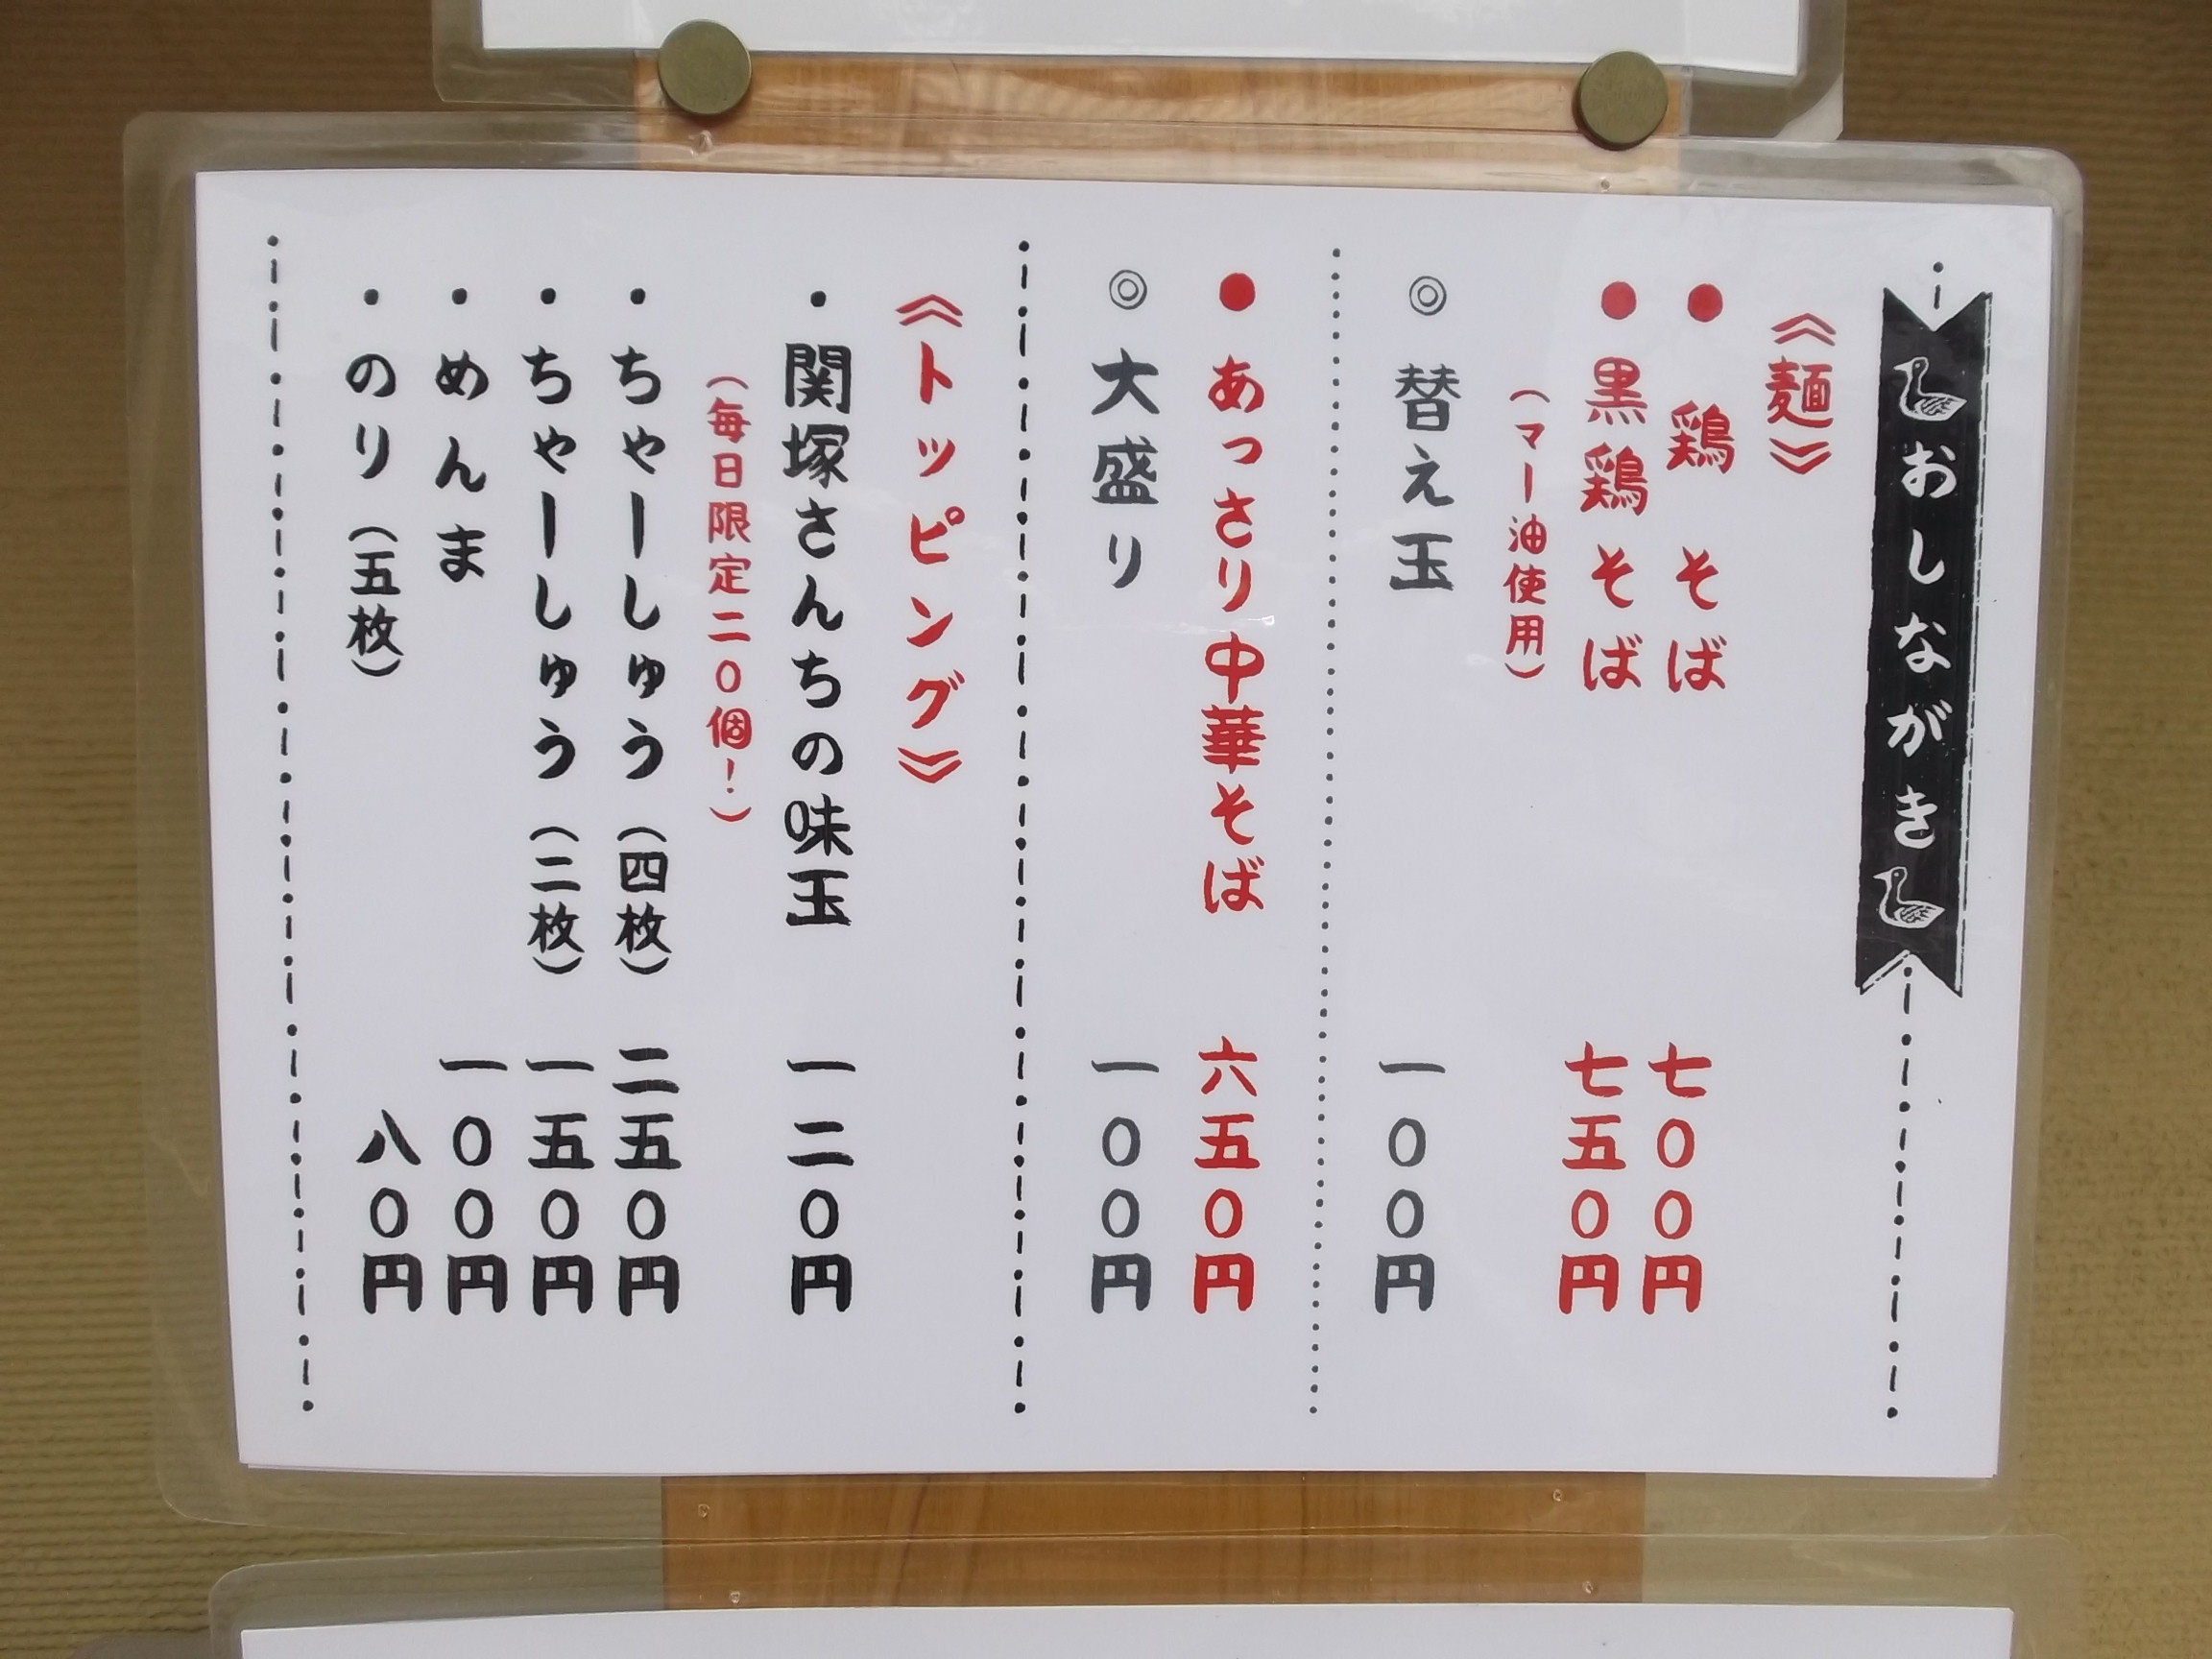 おしながき
《麺》
● 鶏そば 七〇〇円
● 黒鶏そば 七五〇円
（マー油使用）
◎ 替え玉 一〇〇円
● あっさり中華そば 六五〇円
◎ 大盛り 一〇〇円
《トッピング》
・関塚さんちの味玉 一二〇円
（毎日限定二〇個！）
・ちゃーしゅう（四枚） 二五〇円
・ちゃーしゅう（二枚） 一五〇円
・めんま 一〇〇円
・のり（五枚） 八〇円